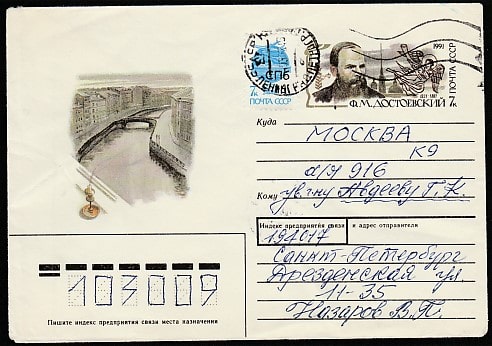 1991
ПОЧТА СССР
7к
ПОЧТА СССР
Ф.М. ДОСТОЕВСКИЙ 7к
1821 1881
СПб
Куда
МОСКВА
К9
а/я 916
Кому
ув. г-ну Авдееву Г.К.
Индекс предприятия связи и адрес отправителя
194017
Санкт-Петербург
Дрезденская ул.
11-35
Назаров В.П.
103009
Пишите индекс предприятия связи места назначения